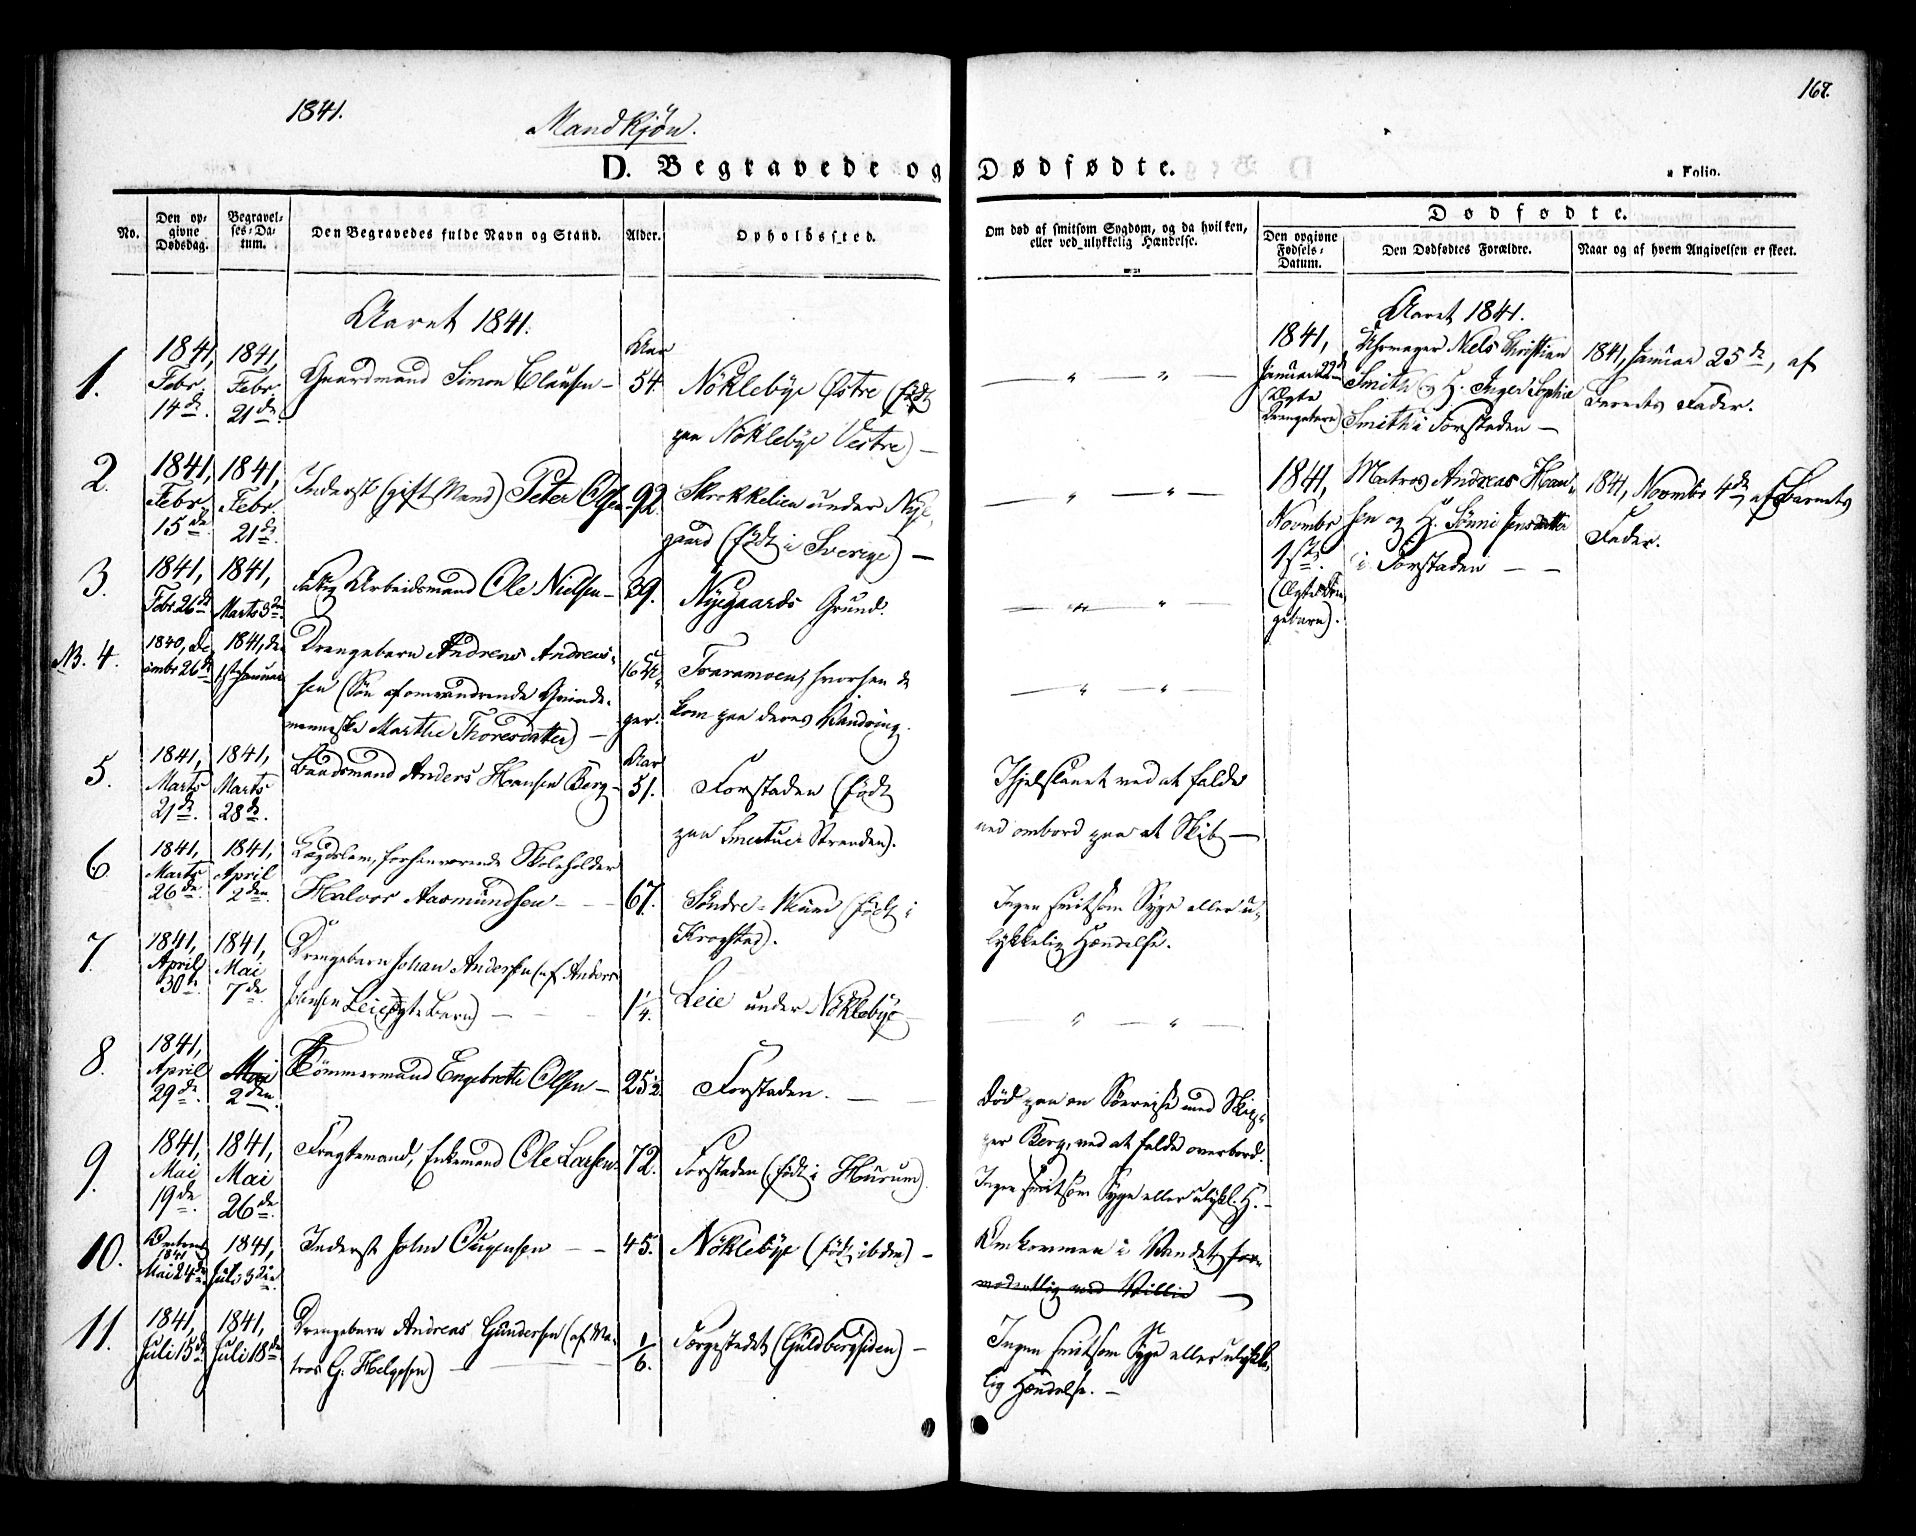 168.
1841.
Mandkjøn.
D. Begravede og Dødfødte.
Folio.
No.
Den opgivne Dødsdag.
Begravelses-Datum.
Den Begravedes fulde Navn og Stand.
Alder.
Opholdssted.
Om død af smitsom Sygdom, og da hvilken,
eller ved ulykkelig Hændelse.
Dødfødte.
Den opgivne Fødsels-Datum.
Den Dødfødtes Forældre.
Naar og af hvem Angivelsen er skeet.
Aaret 1841.
Aaret 1841.
1.
1841, Febr. 14de.
1841, Febr. 21de.
Gaardmand Simon Clausen
Aar 54.
Nöklebye Østre (född
paa Nöklebye Vestre)
1841, Januar 22d (Ægte Drengebarn)
Uhrmager Niels Christian
Smith og H. Inger Sophie
Smith i Forstaden
1841, Januar 25de, af
Barnets Fader.
2.
1841, Febr. 15de.
1841, Febr. 21de.
Inderst (gift Mand) Peter Olsen
92.
Skrekkelien under Nye-
gaard (född i Sverige)
1841, Novmbr 1ste. (Ægte Dren
gebarn).
Matros Andreas Han-
sen og H. Jensdatter
i Forstaden
1841, Novmbr 4de, af Barnets
Fader.
3.
1841, Febr. 26de
1841, Marts 3de.
Fattig Arbeidsmand Ole Nielsen
39.
Nyegaards Grund.
NB. 4.
1840, De
cmbr 26de
1841, den
1ste Januar
Drengebarn Andreas Andreas-
sen (Sön af omvandrende Qvinde-
menneske Marthe Thoresdatter)
16 U-
ger.
hvorhen de
kom paa deres Vandring.
5.
1841, Marts 21de.
1841, Marts 28de.
Baadsmand Anders Hansen Berg
Aar 51.
Forstaden (född
paa Stranden).
Ihjelslaaet ved at falde
ned ombord paa et Skib
6.
1841, Marts 26de.
1841, April 2den.
Lægdslem, forhenværende Skoleholder
Halvor Aasmundsen
67.
Söndre (född i
Krogstad).
Ingen smitsom Syge eller u-
lykkelig Hændelse.
7.
1841, April 30te
1841, Mai 7de.
Drengebarn Johan Andersen (af Anders
Johnsen Leie, ægte Barn)
1 1/4.
Leie under Nöklebye
8.
1841, April 29de
Mai 2den.
Tömmermand Engebreth Olsen
25 1/2.
Forstaden.
Död paa en Söereise med Skip-
per Berg, ved at falde overbord.
9.
1841, Mai 19de.
1841, Mai 26de.
Fragtemand, Enkemand Ole Larsen
72.
Forstaden (född i Hurum).
Ingen smitsom Syge eller ulykl. H.
10.
1841 Mai 24de
1841, Juli 3die.
Inderst John Ougensen
45.
Nöklebye (född ibdm)
Omkommen i Vandet for-
modentlig med Villie
11.
1841, Juli 15de
1841, Juli 18de
Drengebarn Andreas Gundersen (af Ma-
tros G. Helgesen)
1/6.
Torgestedet (Guldbergsiden)
Ingen smitsom Syge eller ulykke-
lig Hændelse.